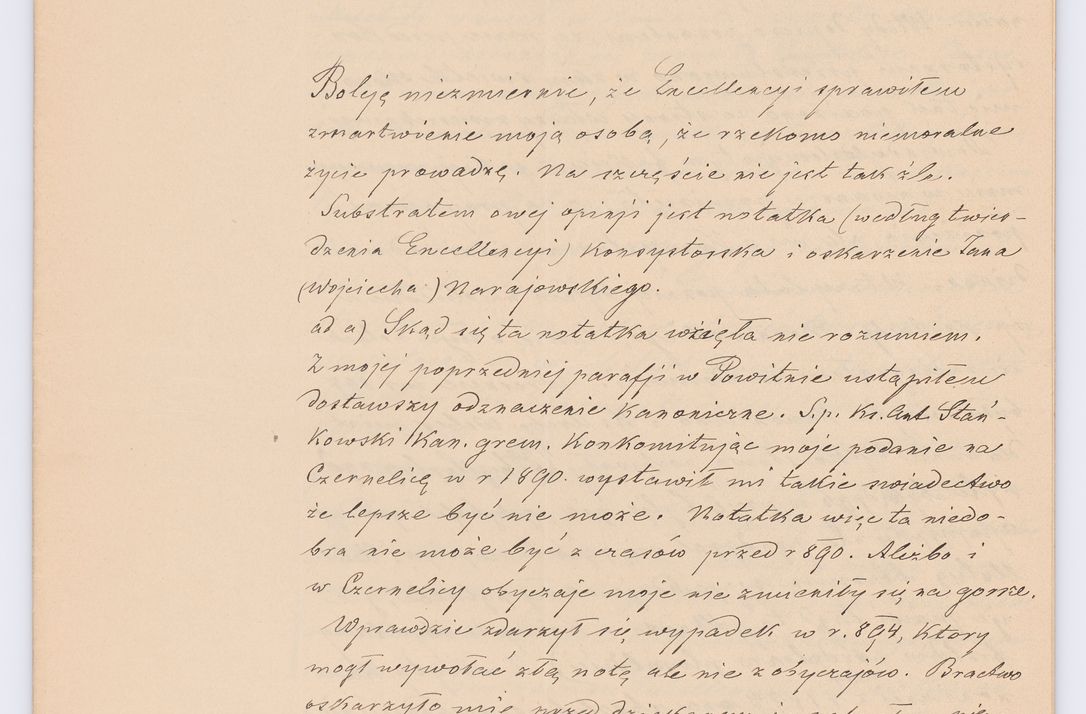 Boleję niezmiernie, że Excellencyi sprawiłem
zmartwienie moją osobą, że rzekomo niemoralne
życie prowadzę. Na szczęście nie jest tak źle.
Substratem owej opinji jest notatka (według twier-
dzenia Excellencyi) Konsystorska i oskarżenie Jana
(Wojciecha) Narajowskiego.
ad a) Skąd się ta notatka wzięła nie rozumiem.
Z mojej poprzedniej parafji w Powitnie ustąpiłem
dostawszy odznaczenie kanoniczne. S.p. Ks. Ant Stań-
kowski Kan. grem. Konkomitując moje podanie na
Czernelicę w r 1890. wystawił mi takie swiadectwo
że lepsze być nie może. Notatka więc ta niedo-
bra nie może być z czasów przed r 890. Aliżbo i
w Czernelicy obyczaje moje nie zmieniły się na gorsze.
Wprawdzie zdarzył się wypadek w r. 894, Ktory
mogł wywołać złą notę, ale nie z obyczajów. Bractwo
oskarżyło mię przed